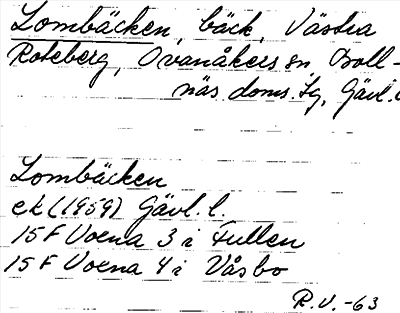 Lombäcken, bäck, Västra
Roteberg, Ovanåkers sn, Boll-
näs doms. tg, Gävl. l.
Lombäcken
ek (1959) Gävl. l.
15 F Voxna 3 i Fullen
15 F Voxna 4 i Våsbo
R.V. -63